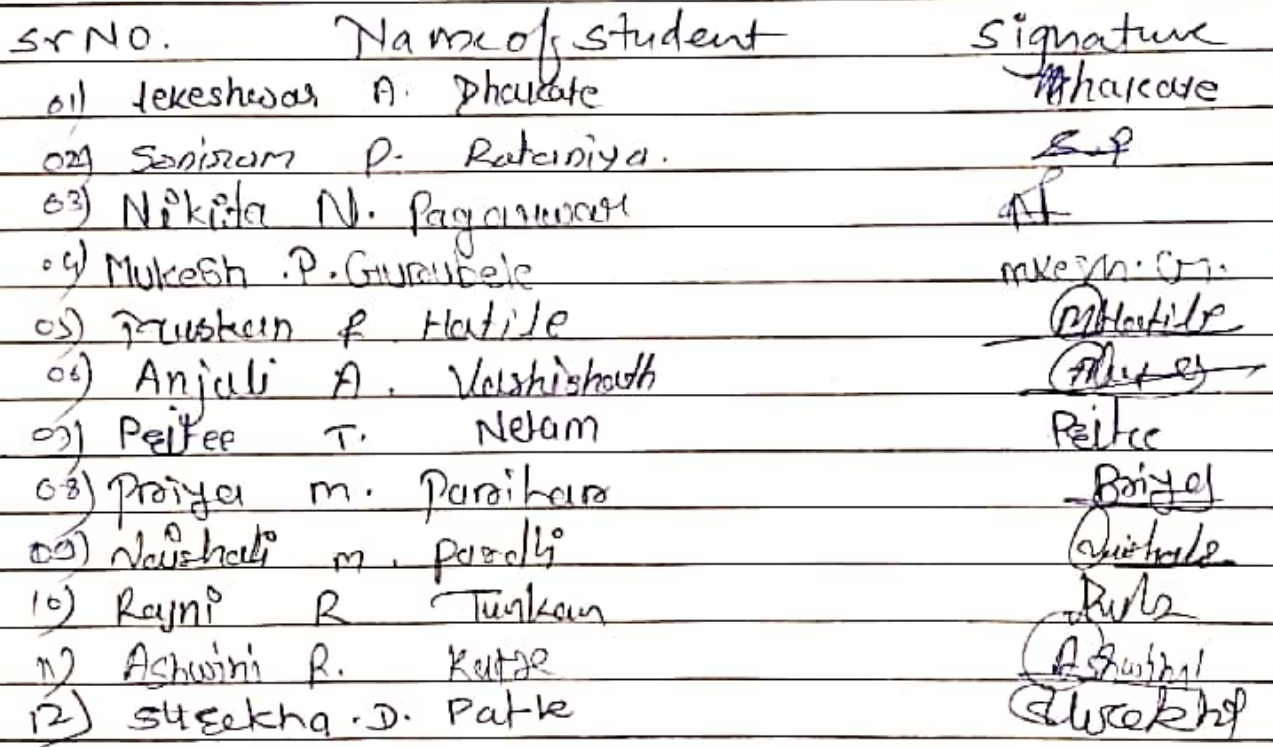 Sr NO. Name of student Signature
01) Tekeshwar A. Dhakate Dhakate
02) Soniram P. Rataniya. S.P
03) Nikita N. Pagarwar
04) Mukesh .P. Gurubele mkesh. G.
05) Muskan P Hatile MHatile
06) Anjali A. Vashishath
07) Peitee T. Netam Peitee
08) Priya m. Parihar Priya
09) Vaishali m. Pardhi Vaishali
10) Rajni R Tunkar
11) Ashwini R. Katre Ashwini
12) Sureekha .D. Patle Sureekha